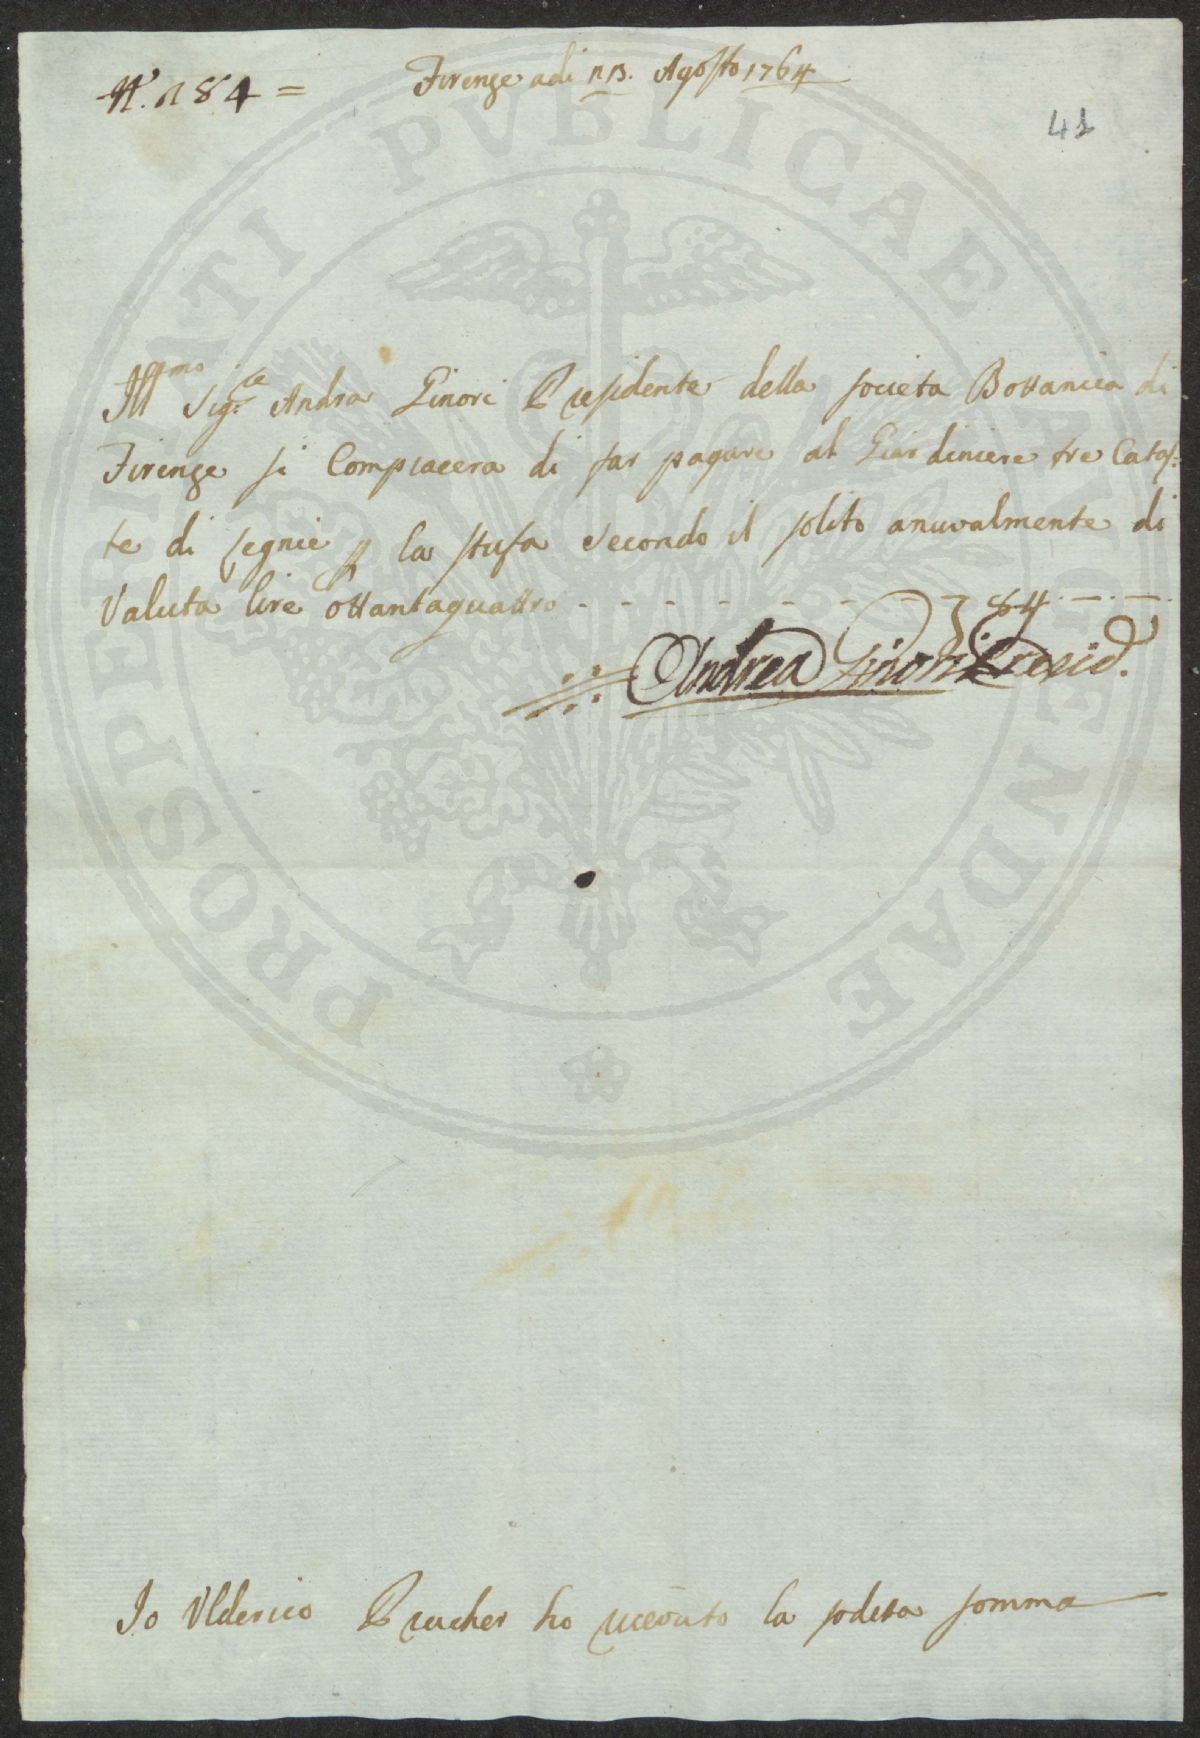 N.° 184 =
Firenze adi 13. Agosto 1764
41
Ill.mo Sig.re Andra Ginori Presidente della Societa Bottanica di
Firenze si Compiacera di far pagare al Giardiniere tre Catas-
te di Legnie p la stufa secondo il solito anuvalmente di
Valuta lire ottantaquattro - - - - - - - - 84 . — . —.
Andrea Ginori Presid.
Io Vlderico Prucher ho riceuto la sodetta somma
PROSPERITATI PVBLICAE AVGENDAE